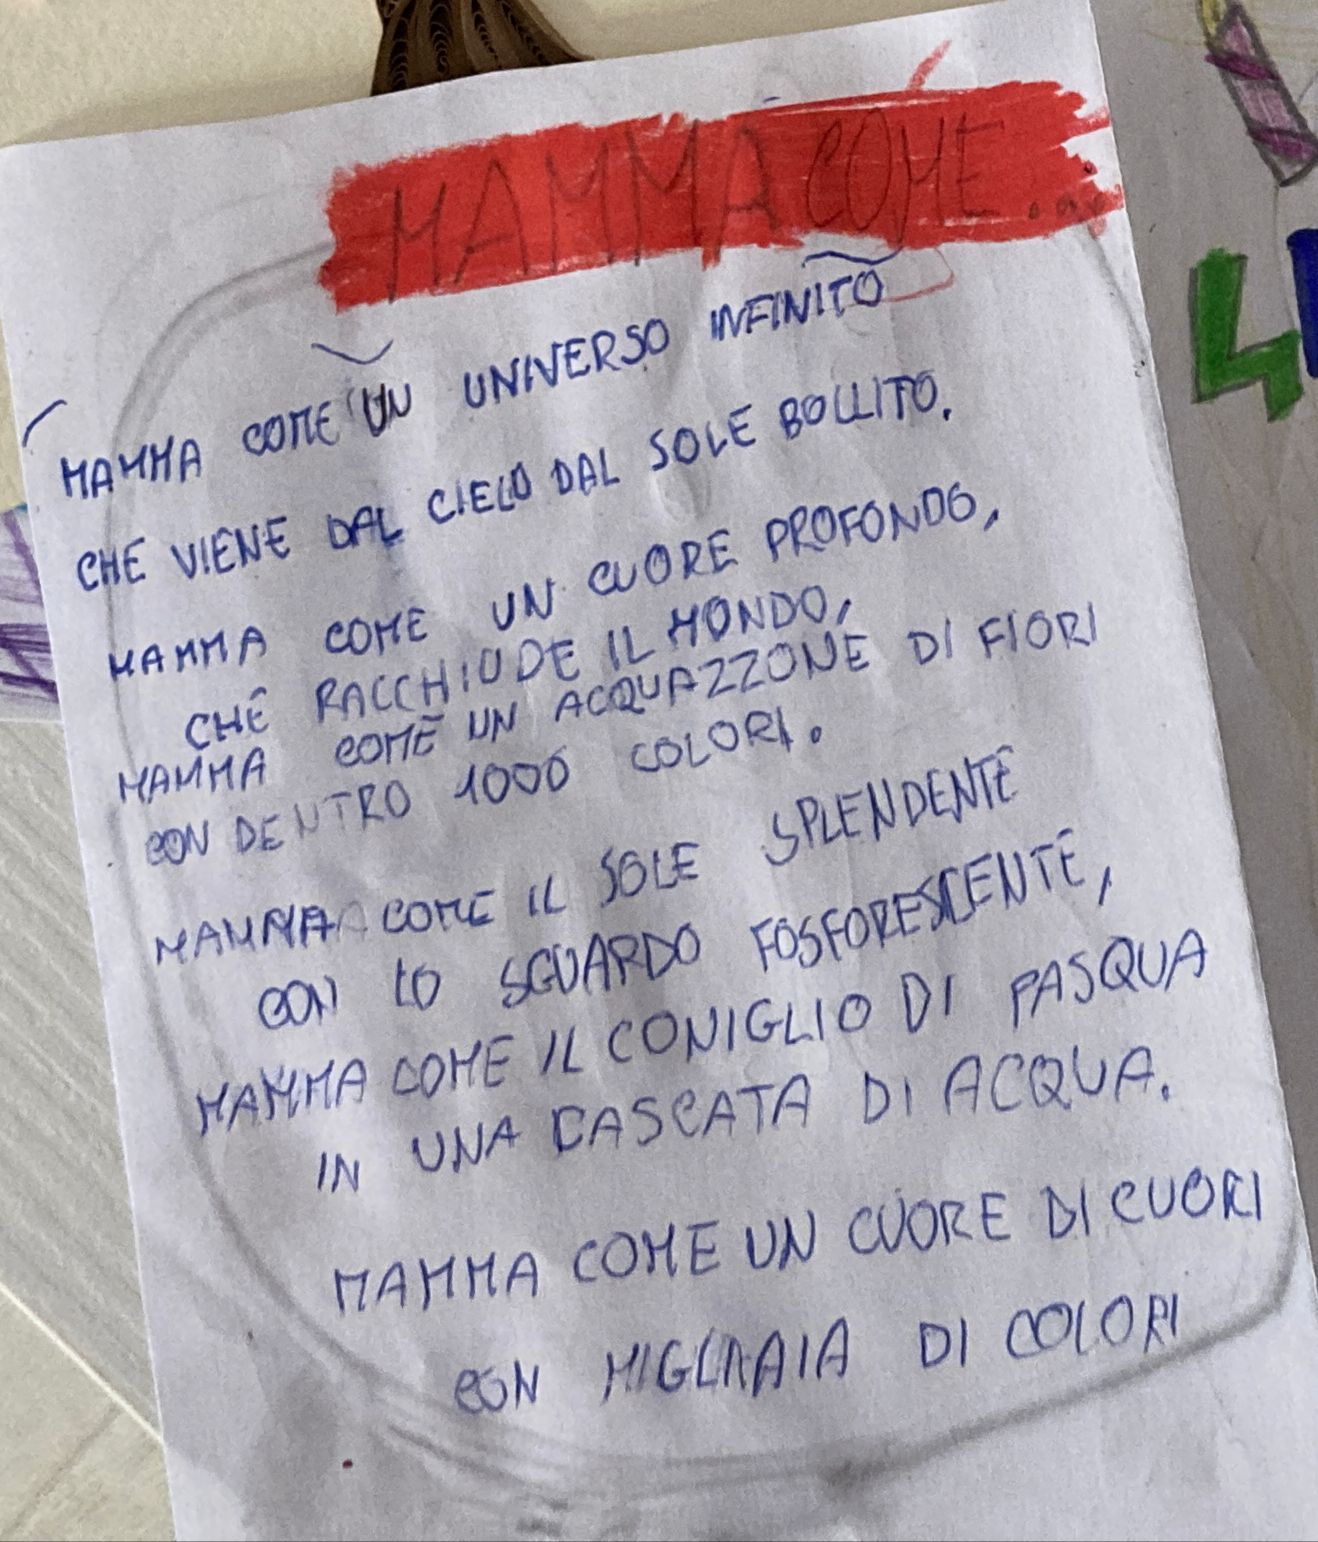 MAMMA COME...
MAMMA COME UN UNIVERSO INFINITO
CHE VIENE DAL CIELO DAL SOLE BOLLITO.
MAMMA COME UN CUORE PROFONDO,
CHE RACCHIUDE IL MONDO,
MAMMA COME UN ACQUAZZONE DI FIORI
CON DENTRO 1000 COLORI.
MAMMA COME IL SOLE SPLENDENTE
CON LO SGUARDO FOSFORESCENTE,
MAMMA COME IL CONIGLIO DI PASQUA
IN UNA CASCATA DI ACQUA.
MAMMA COME UN CUORE DI CUORI
CON MIGLIAIA DI COLORI